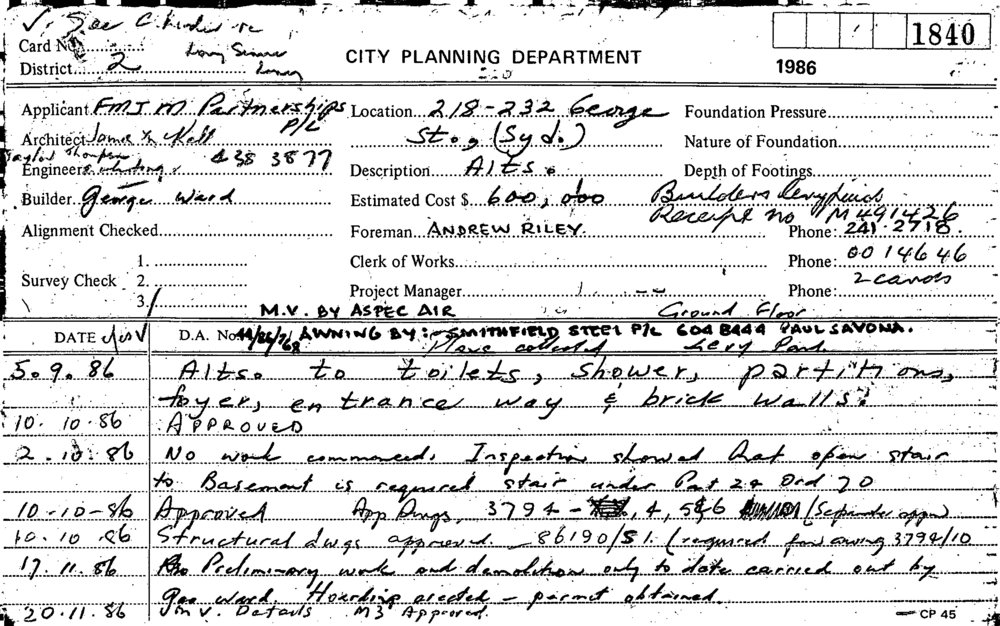 1840
Card No.
District 2
CITY PLANNING DEPARTMENT
1986
Applicant FMJM Partnerships P/L
Location 218-232 George
Foundation Pressure
Architect
St., (Syd.)
Nature of Foundation
Engineers
438 3877
Description Alts.
Depth of Footings
Builder George Ward
Estimated Cost $ 600,000
Builders levy
Receipt no M491426
Alignment Checked
Foreman ANDREW RILEY
Phone: 241-2718.
Survey Check 1.
2.
3.
Clerk of Works
Phone: 0014646
Project Manager
Phone: 2 cards
M.V. BY ASPEC AIR
Ground Floor
DATE
D.A. No. 44/86/768 AWNING BY:- SMITHFIELD STEEL P/L 604 8444 PAUL SAVONA.
Plans collected Levy Paid.
5.9.86 Alts. to toilets, shower, partitions,
foyer, entrance way & brick walls.
10.10.86 APPROVED
2.10.86 No work commenced. Inspection showed that open stair
to Basement is required stair under Part 24 Ord 70
10-10-86 Approved App Dwgs, 3794 - 4, 5&6
10.10.86 Structural dwgs approved. 86190/S1. (required for awing 3794/10
17.11.86 Preliminary work and demolition only to date carried out by
Geo Ward. Hoarding erected - permit obtained.
20.11.86 Details M3 Approved.
CP 45